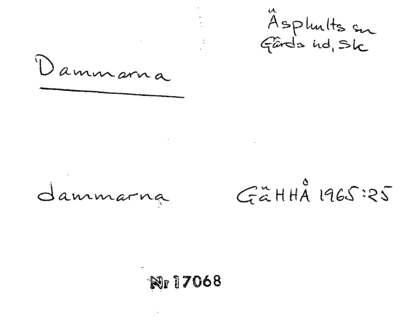 Äsphults sn
Gärds hd, Sk
Dammarna
dammarna GäHHÅ 1965:25
Nr 17068